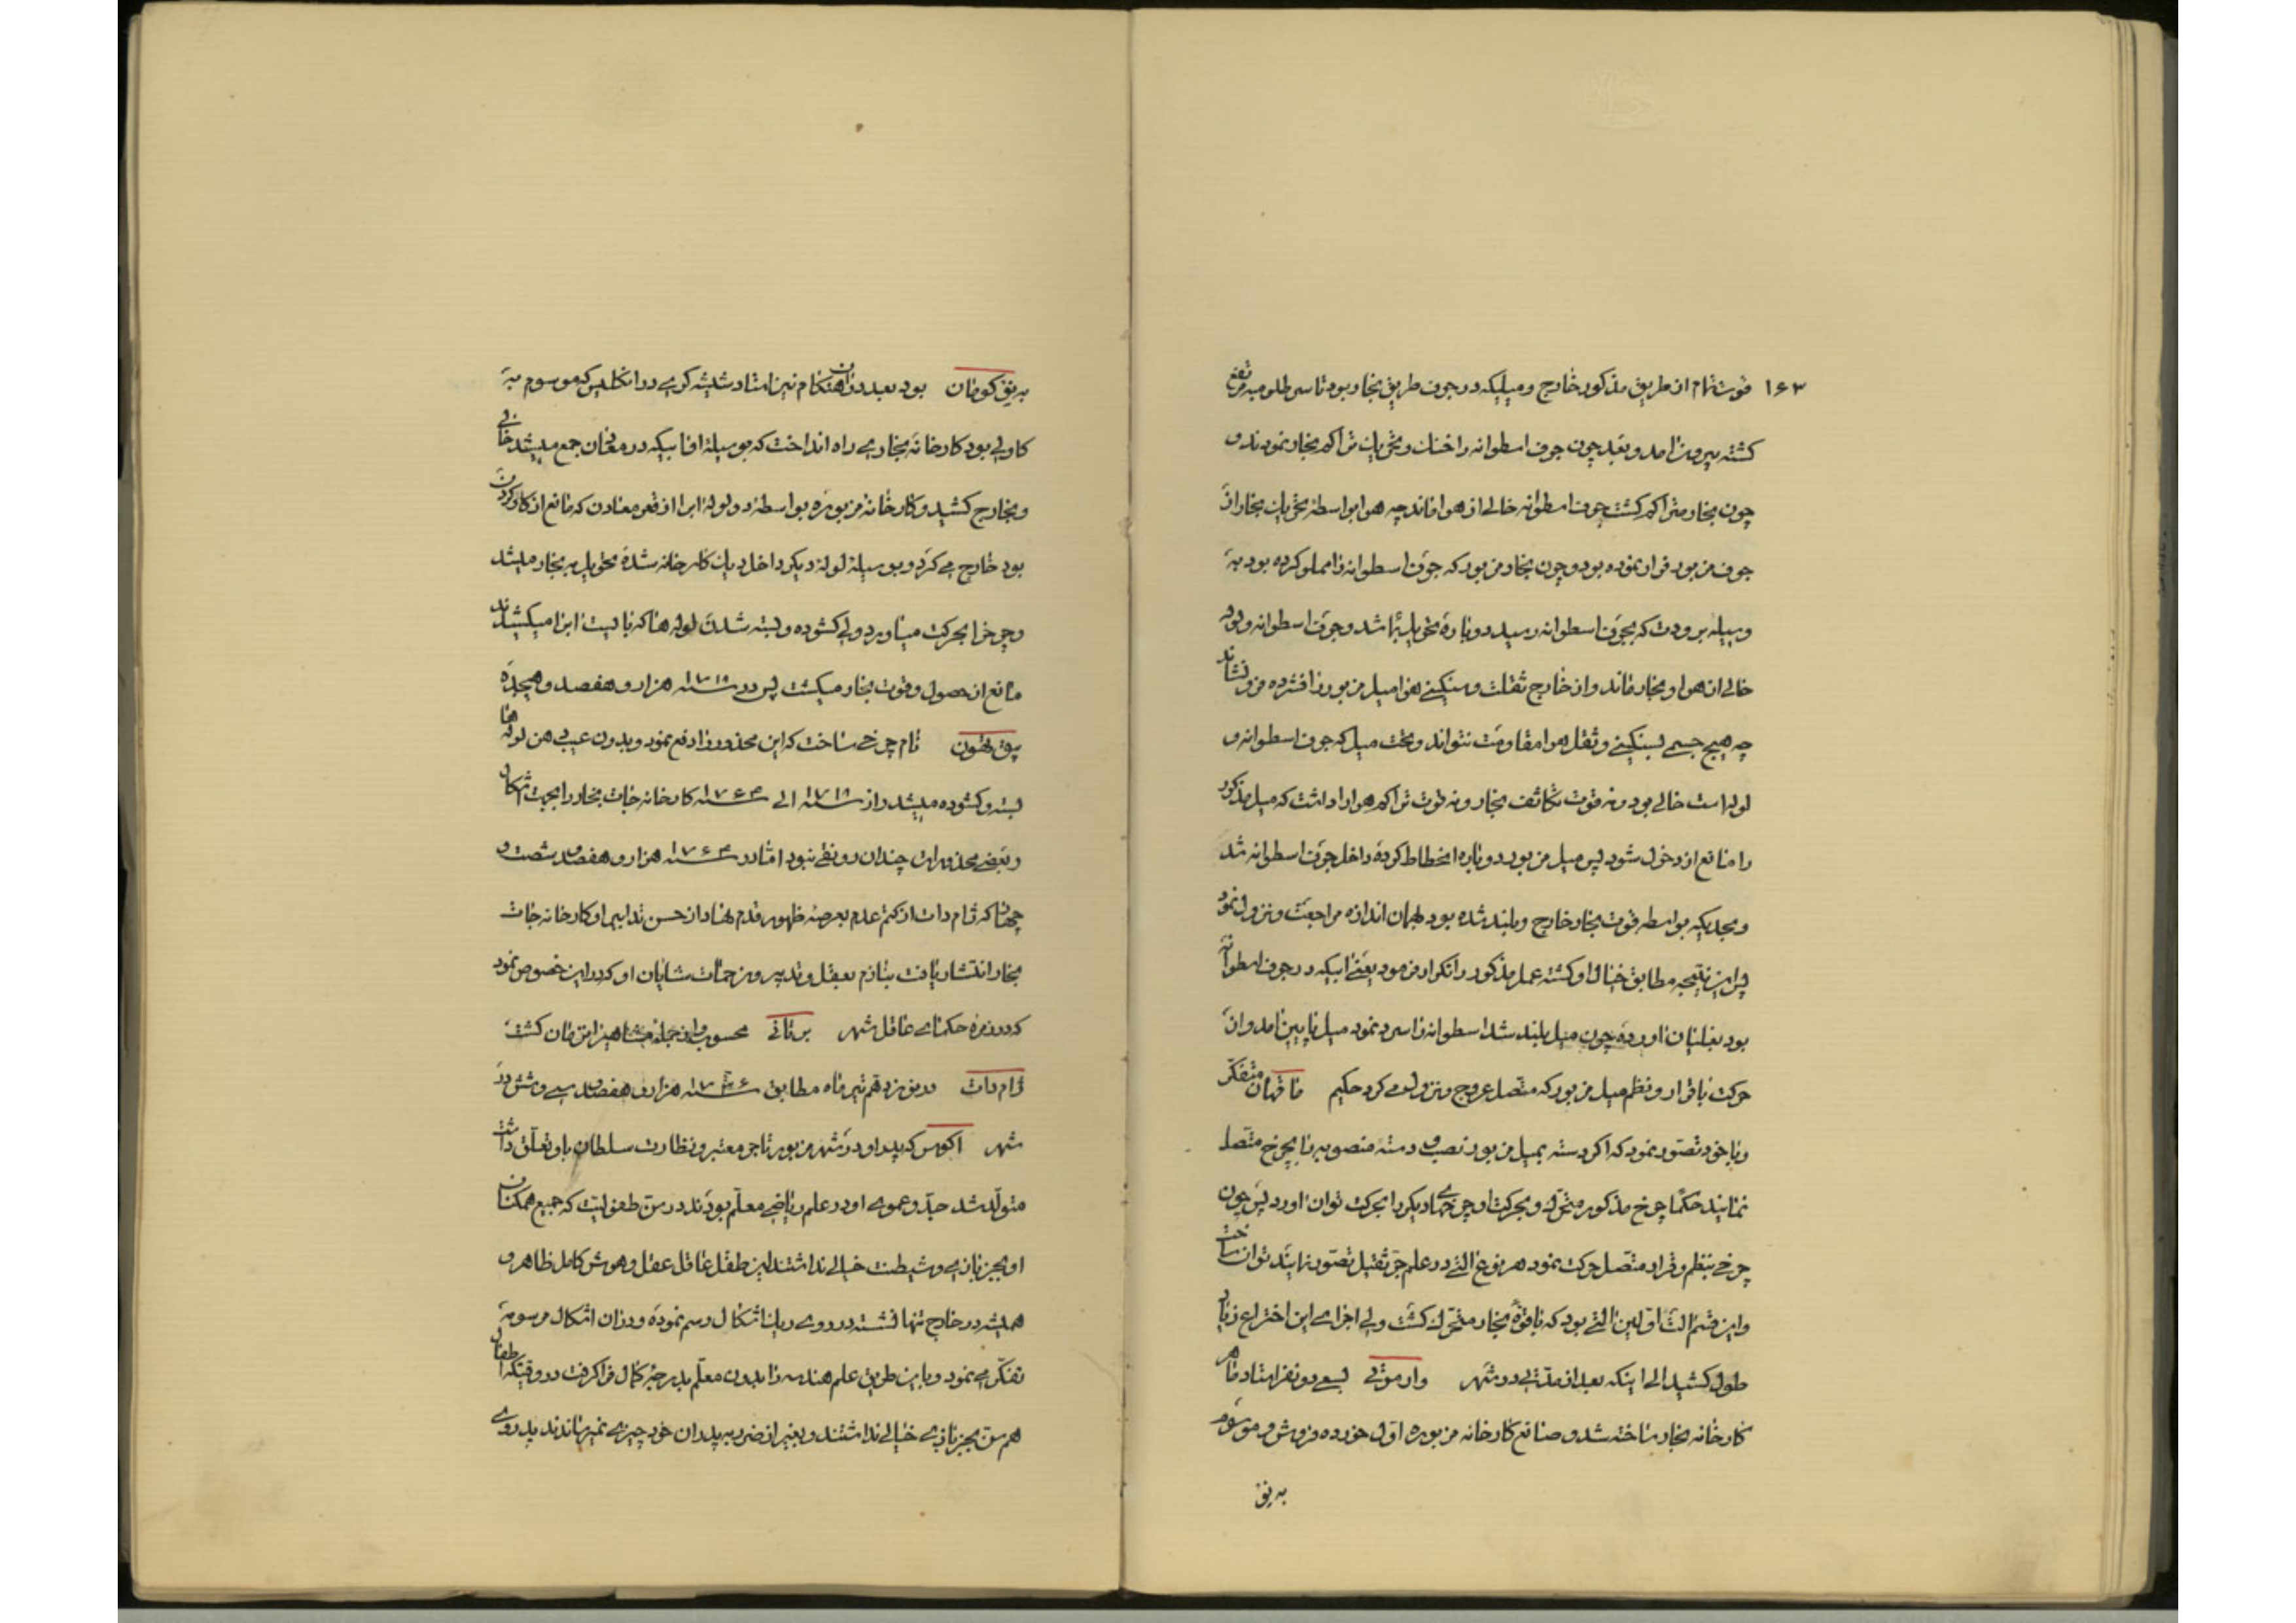 ۱۶۳ قوت تمام از طریق مذکور خارج و میلیکه در جوف طریق بخار بود تا سر حلقوم مرتفع
کشته بیرون آمد و بعد چون جوف اسطوانه را خنک و بخریان تراکم بخار نمودند و
چون بخار متراکم کشت جوف اسطوانه خالی از هوا ماند چه هوا بواسطه بخریان بخار از
جوف مزبور فرار نموده بود و چون بخار مزبور که جوف اسطوانه را مملو کرده بود به
وسیله برودت که بجوف اسطوانه رسید دوباره تحویل بما شد و جوف اسطوانه و لوله
خالی از هوا و بخار ماند و از خارج ثقلت و سنکینی هوا میل مزبور را فشرده فرو نشاند
چه هیچ جسمی بسنکینی و ثقل هوا مقاومت نتواند و تحت میل که جوف اسطوانه و
لوله است خالی بود و نه قوت تکاثف بخار و نه قوت تراکم هوا را داشت که میل مذکور
را مانع از دخول شود پس میل مزبور دوباره انحطاط کرده داخل جوف اسطوانه شد
و بحدیکه بواسطه قوت بخار خارج و بلند شده بود بهمان اندازه مراجعت و نزول نمود
پس این نتیجه مطابق خیال او کشته عمل مذکور را تکرار فرمود یعنی آبیکه در جوف اسطوانه
بود بغلیان آورده چون میل بلند شد اسطوانه را سرد نمود میل پایین آمد و از
حرکت باقرار و نظم میل مزبور که متصل عروج و نزول می کرد حکیم متفکر
و با خود تصور نمود که اگر دسته بمیل مزبور نصب و دسته منصوبه را بچرخ متصل
نمایند حکما چرخ مذکور متحرک و بحرکت او چرخهای دیکر را بحرکت توان آورد پس چون
چرخی بنظم و قرار متصل حرکت نمود هر نوع آلتی در علم جر ثقیل تصور نمایند توان ساخت
و این قسم آلت اولین آلتی بود که با قوه بخار متحرک کشت ولی اجرای این اختراع زیاد
طول کشید الی اینکه بعد از مدتی در شهر وارموثی بسعی دو نفر استاد ماهر
کارخانه بخار ساخته شد و صانع کارخانه مزبوره اول خورده فروش و موسوم
به نیو
به نیو کومان بود بعد در آن هنکام نیز استاد شیشه کری در انکلیس که موسوم به
کاولی بود کارخانه بخاری راه انداخت که بوسیله او آبیکه در معدن جمع میشد خالی
و بخارج کشید و کارخانه مزبوره بواسطه دو لوله آبرا از قعر معادن که مانع از کار کردن
بود خارج می کرد و بوسیله لوله دیکر داخل دیک کارخانه شده تحویل به بخار میشد
و چرخ را بحرکت میآورد ولی کشوده و بسته شدن لوله ها که بایست آبرا میکشیدند
مانع از حصول و قوت بخار میکشت پس در سنه ۱۷۱۸ هزار و هفصد و هیجده
نام چرخی ساخت که این محذور را دفع نمود و بدون عیبی هر لوله ها
بسته و کشوده میشد و از سنه ۱۷۱۸ الی سنه ۱۷۶۴ کارخانه جات بخار را بجهت اشکال
و بعضی محذورات چندان رونقی نبود اما در سنه ۱۷۶۴ هزار و هفصد شصت و
چهار که ژام دات از کتم عدم بعرصه ظهور قدم نهاد از حسن تدابیر او کارخانه جات
بخار انتشار یافت بنازم بعقل و تدبیر و زحمات شایان او که در این خصوص نمود
که در زمره حکمای عاقل شهر برتانی محسوب و از جمله مشاهیر آن زمان کشت
ژام دات در نوزدهم تیر ماه مطابق سنه ۱۷۳۶ هزار و هفصد سی و شش در
شهر اکوس که پدر او در شهر مزبور تاجر معتبر و نظارت سلطان باو تعلق داشت
متولد شد جد و عموی او در علم ریاضی معلم بودند در سن طفولیت که جمیع همکنان
او بجز بازی و شیطنت خیالی نداشتند این طفل عاقل عقل و هوش کامل ظاهر و
همیشه در خارج تنها نشسته در روی ریک اشکال رسم نموده و در آن اشکال مرسومه
تفکر می نمود و باین طریق علم هندسه را بدون معلم بدرجه کمال فرا کرفت در وقتیکه اطفال
هم سن بجز بازی خیالی نداشتند و بغیر از ضرر به پدران خود چیزی نمیرساندند پدر وی